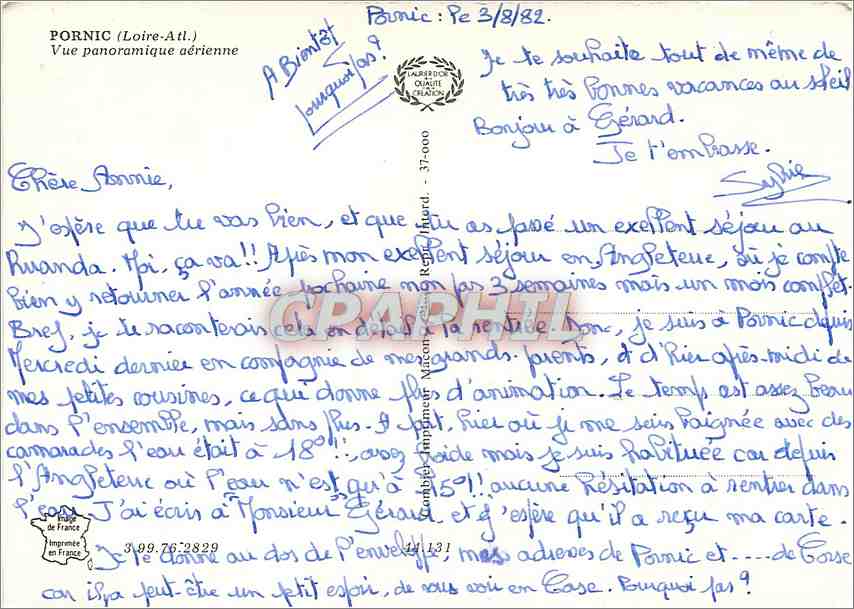 PORNIC (Loire-Atl.)
Vue panoramique aérienne
Pornic : le 3/8/82.
Chère Annie,
J'espère que tu vas bien, et que tu as passé un exellent séjour au
Rwanda. Moi, ça va!! Après mon exellent séjour en Angleterre, où je compte
bien y retourner l'année prochaine non pas 3 semaines mais un mois complet.
Bref, je te raconterais cela en détail à la rentrée. Donc, je suis à Pornic depuis
Mercredi dernier en compagnie de mes grands-parents, et d'hier après-midi de
mes petites cousines, ce qui donne plus d'animation. Le temps est assez beau
dans l'ensemble, mais sans plus. A part, hier où je me suis baignée avec des
camarades l'eau était à 18°!!, assez froide mais je suis habituée car depuis
l'Angleterre où l'eau n'est qu'à 15°!! aucune hésitation à rentrer dans
l'eau. J'ai écris à "Monsieur" Gérard, et j'espère qu'il a reçu ma carte.
Je te donne au dos de l'enveloppe, mes adresses de Pornic et .... de Corse
car il y a peut-être un petit espoir, de vous voir en Corse. Pourquoi pas?
Je te souhaite tout de même de
très très bonnes vacances au soleil
Bonjour à Gérard.
Je t'embrasse.
Sylvie
A Bientôt
pourquoi pas?
LAURIER D'OR
DE LA
QUALITÉ
CRÉATION
Combier Imprimeur Mâcon Repr. Interd. - 37-000
CPAPHIL
Image
de France
Imprimée
en France
3.99.76.2829
44.131